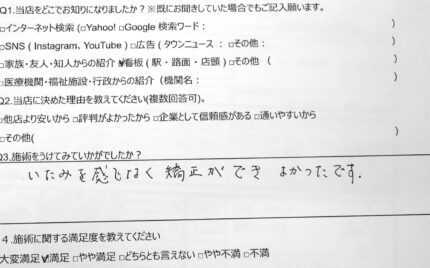 Q1.当店をどこでお知りになりましたか？※既にお聞きしていた場合でもご記入願います。
□インターネット検索(□Yahoo! □Google 検索ワード： )
□SNS ( Instagram、YouTube ) □広告 ( タウンニュース ： □その他： )
□家族・友人・知人からの紹介 ☑看板 ( 駅・路面・店頭 ) □その他 ( )
□医療機関・福祉施設・行政からの紹介 ( 機関名： )
Q2.当店に決めた理由を教えてください(複数回答可)。
□他店より安いから □評判がよかったから □企業として信頼感がある □通いやすいから
□その他( )
Q3.施術をうけてみていかがでしたか？
いたみを感じなく 矯正ができ よかったです.
４.施術に関する満足度を教えてください
大変満足 ☑満足 □やや満足 □どちらとも言えない □やや不満 □不満